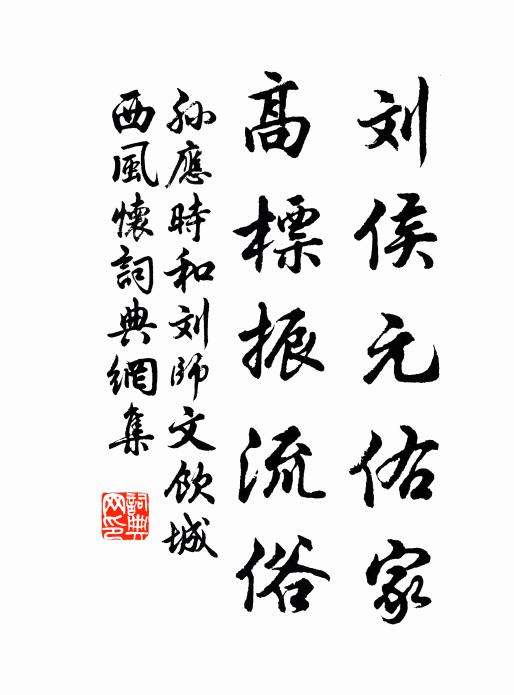 刘侯元佑家
高標振流俗
孙應時和刘師文飲城
西風懷詞典網集
詞典網印